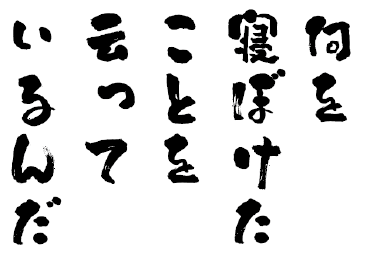 何を
寝ぼけた
ことを
云って
いるんだ